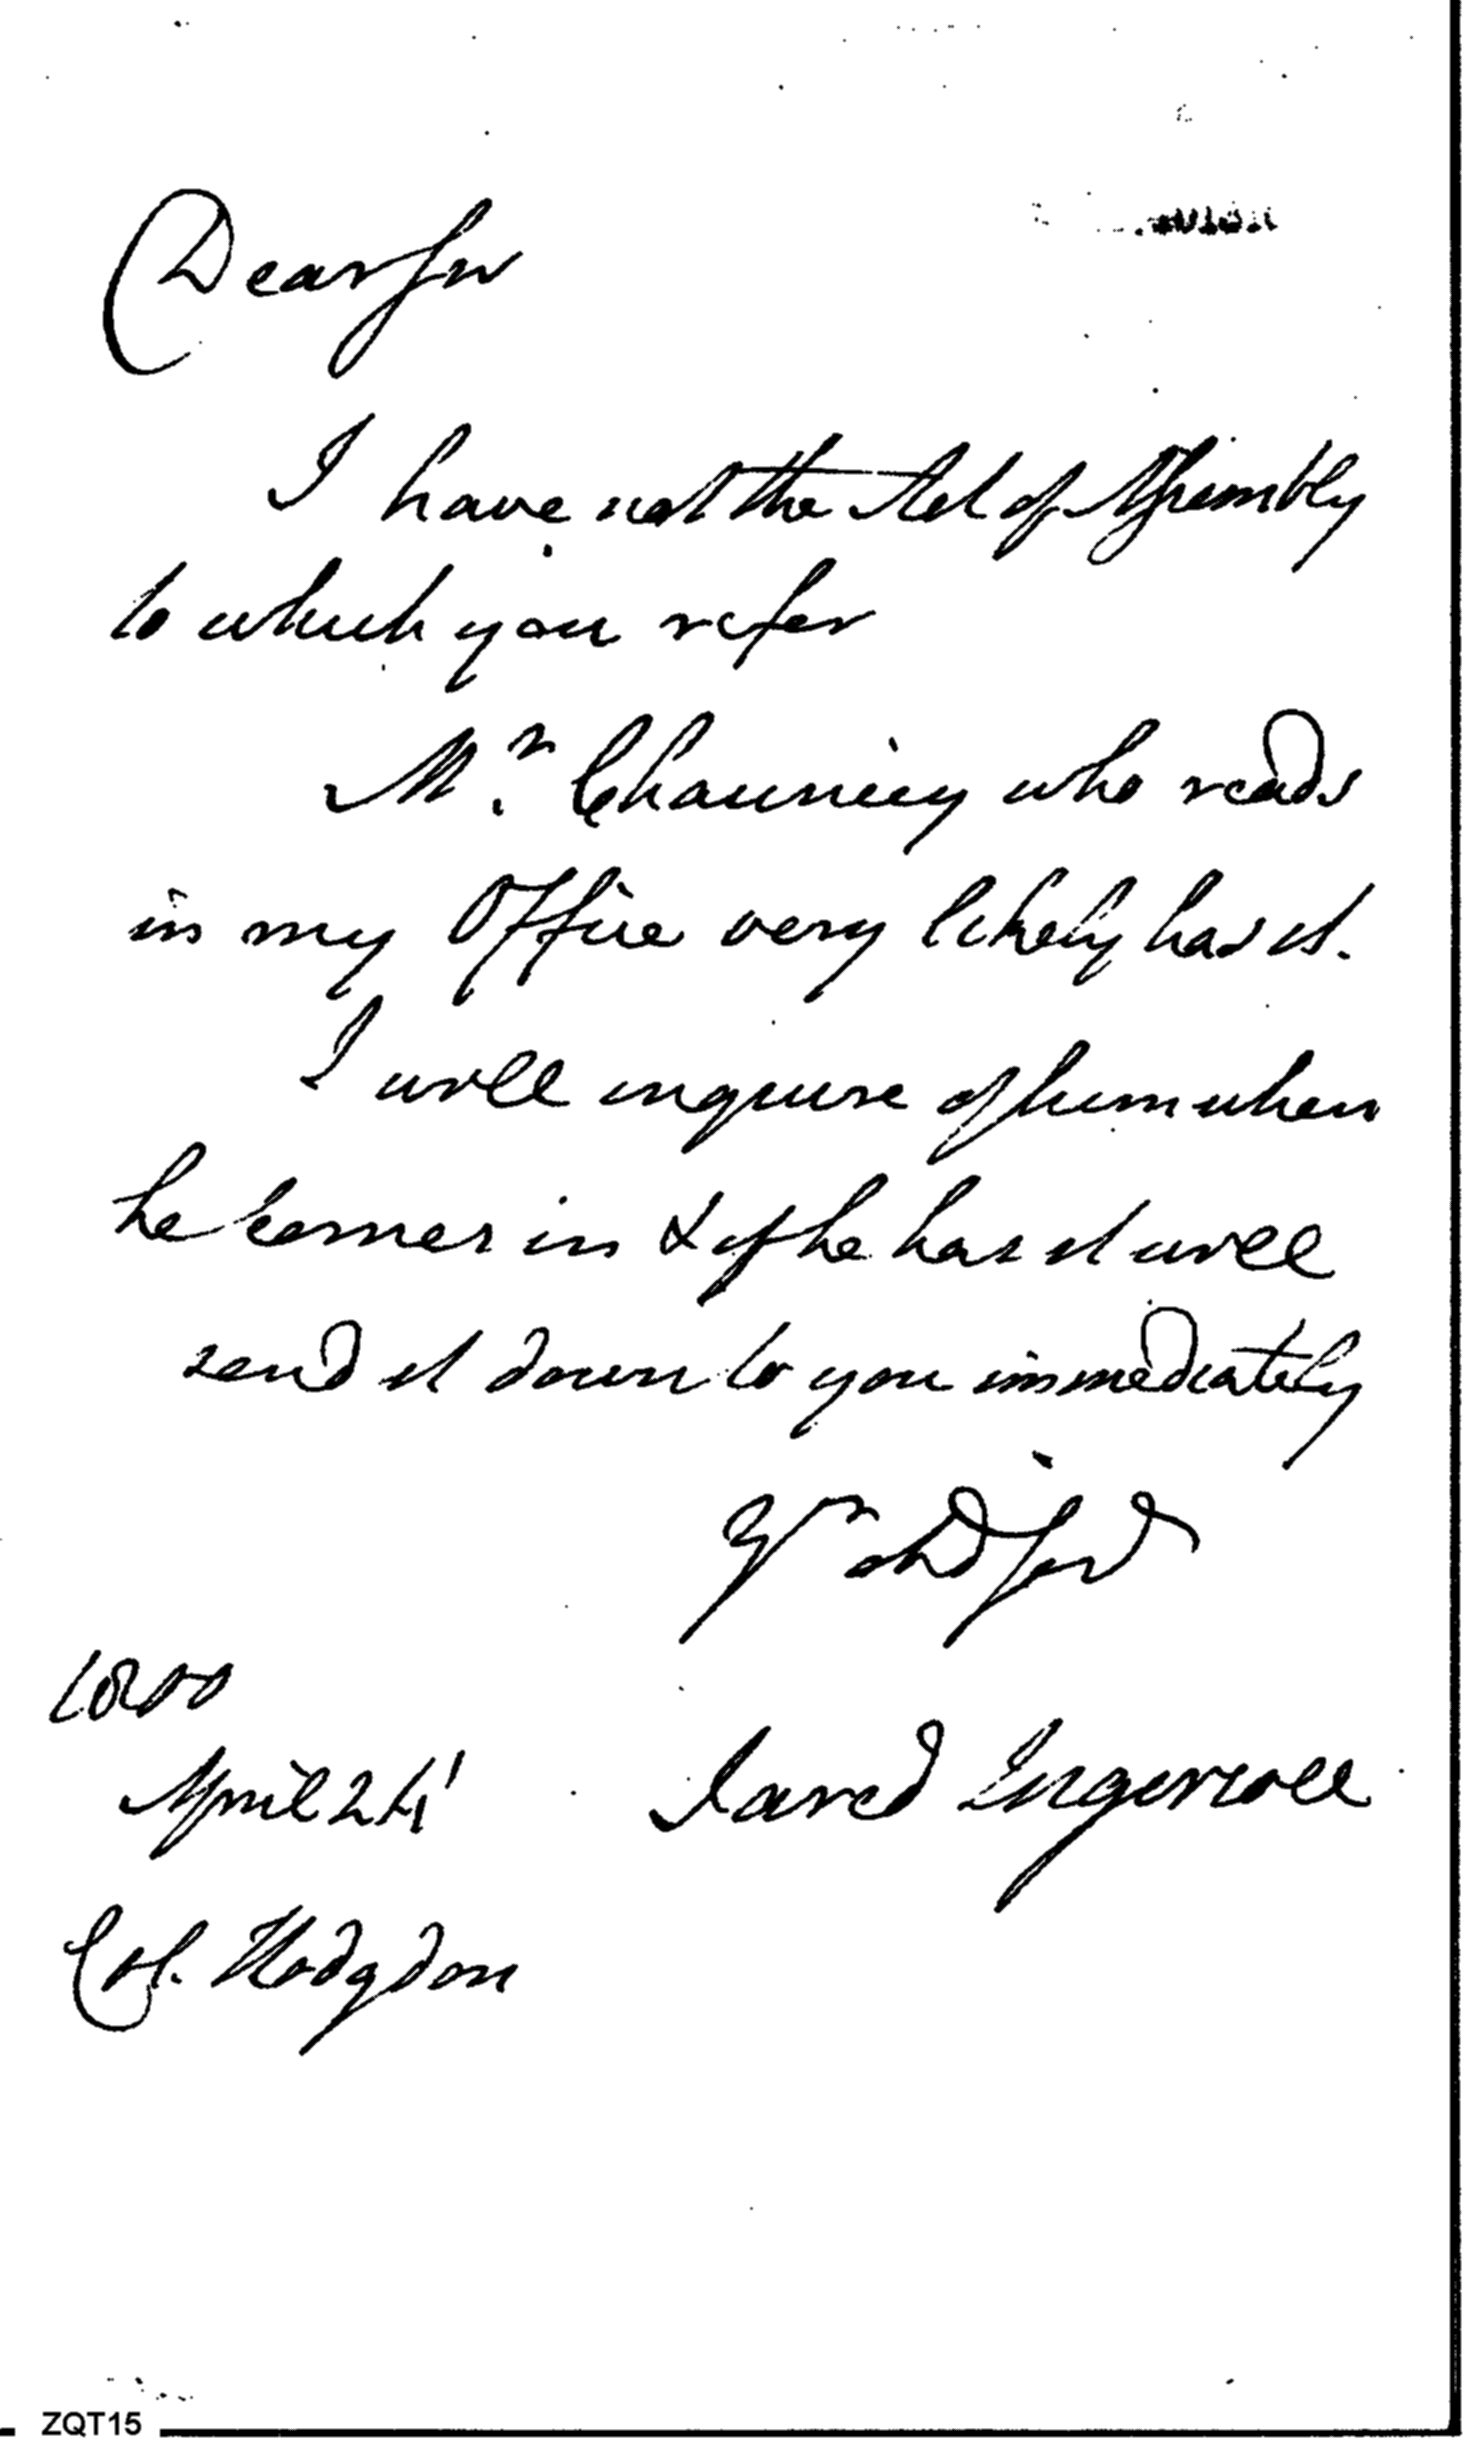 Dear Sir
I have not the Act of Assembly
to which you refer
Mr. Chauncey who reads
in my Office very likely has it.
I will inquire of him when
he comes in & if he has it will
send it down to you immediately
Yr obd Ser
1800
April 24
Jared Ingersoll
Col. Hodgdon
ZQT15